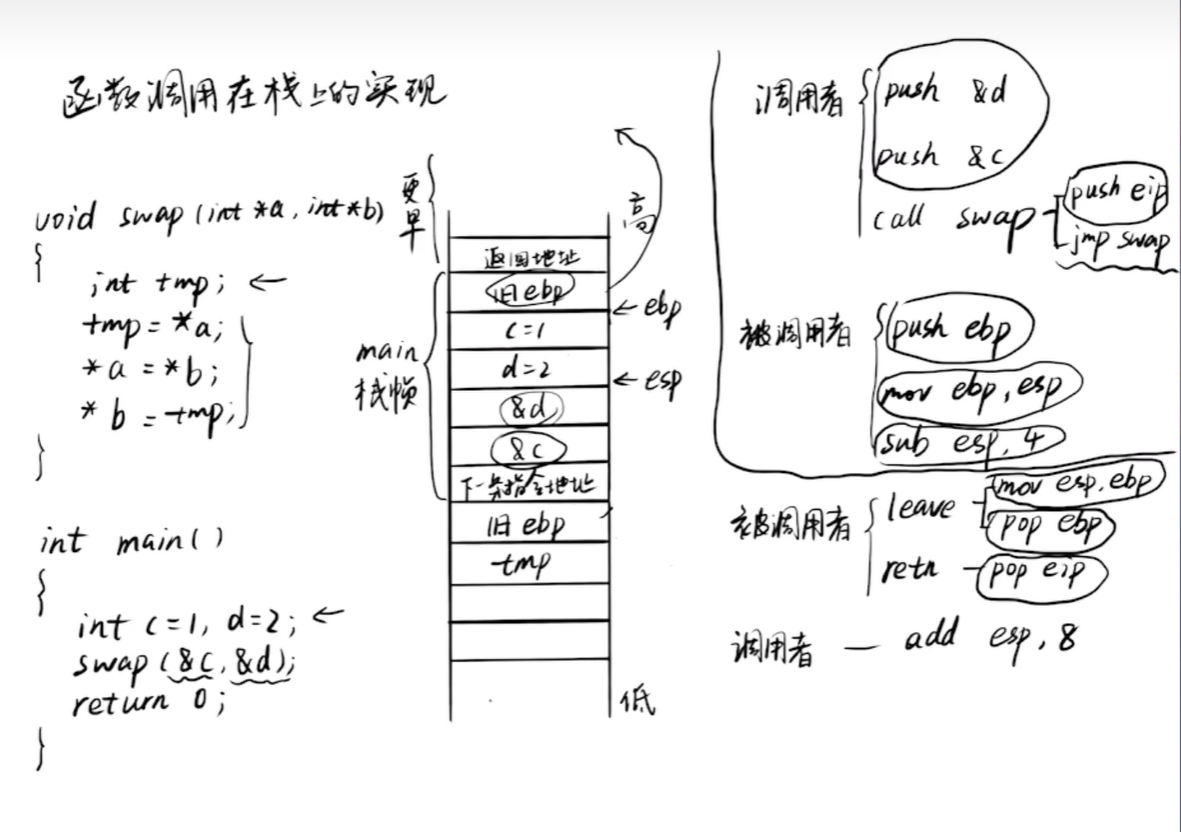 函数调用在栈上的实现
void swap (int *a, int*b)
{
int tmp; ←
tmp = *a;
*a = *b;
* b = tmp;
}
int main()
{
int c=1, d=2; ←
swap (&c, &d);
return 0;
}
更早
高
返回地址
旧ebp
← ebp
c=1
main栈帧
d=2
← esp
&d
&c
下一条指令地址
旧ebp
tmp
低
调用者
push &d
push &c
call swap
push eip
jmp swap
被调用者
push ebp
mov ebp, esp
sub esp, 4
被调用者
leave
mov esp, ebp
pop ebp
retn
pop eip
调用者 — add esp, 8